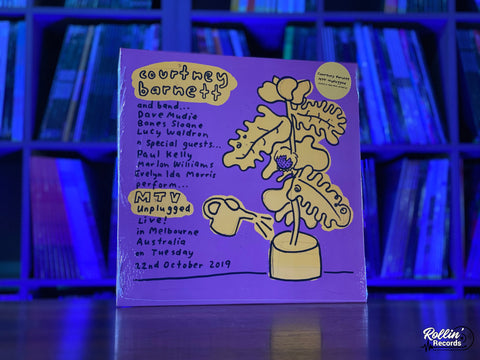 courtney
barnett
and band...
Dave Mudie
Bones Sloane
Lucy Waldron
n Special guests...
Paul Kelly
Marlon Williams
Evelyn Ida Morris
perform...
MTV
Unplugged
Live!
in Melbourne
Australia
on Tuesday
22nd October 2019
Courtney Barnett
MTV Unplugged
Rollin'
Records